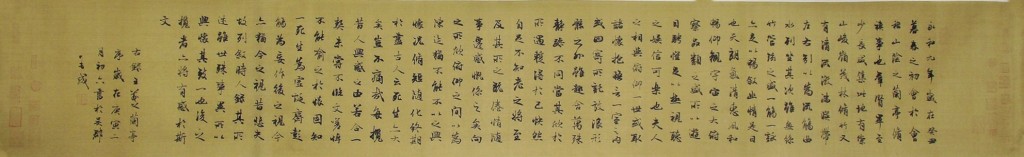 永和九年歲在癸丑
暮春之初會于會
稽山陰之蘭亭脩
禊事也羣賢畢至
少長咸集此地有崇
山峻領茂林脩竹又
有清流激湍暎帶
左右引以為流觴曲
水列坐其次雖無絲
竹管弦之盛一觴一詠
亦足以暢敘幽情是日
也天朗氣清惠風和
暢仰觀宇宙之大俯
察品類之盛所以遊
目騁懷足以極視聽
之娛信可樂也夫人
之相與俯仰一世或取
諸懷抱悟言一室之內
或因寄所託放浪形
骸之外雖趣舍萬殊
靜躁不同當其欣於
所遇暫得於己快然
自足不知老之將至
及其所之既惓情隨
事遷感慨係之矣向
之所欣俛仰之間以為
陳迹猶不能不以之興
懷況脩短隨化終期
於盡古人云死生亦大
矣豈不痛哉每攬
昔人興感之由若合一
契未嘗不臨文嗟悼
不能喻之於懷固知
一死生為虛誕齊彭
殤為妄作後之視今
亦猶今之視昔悲夫
故列敘時人錄其所
述雖世殊事異所以
興懷其致一也後之
攬者亦將有感於斯
文
王羲之蘭亭
序歲在庚寅二
月初六書於吳郡